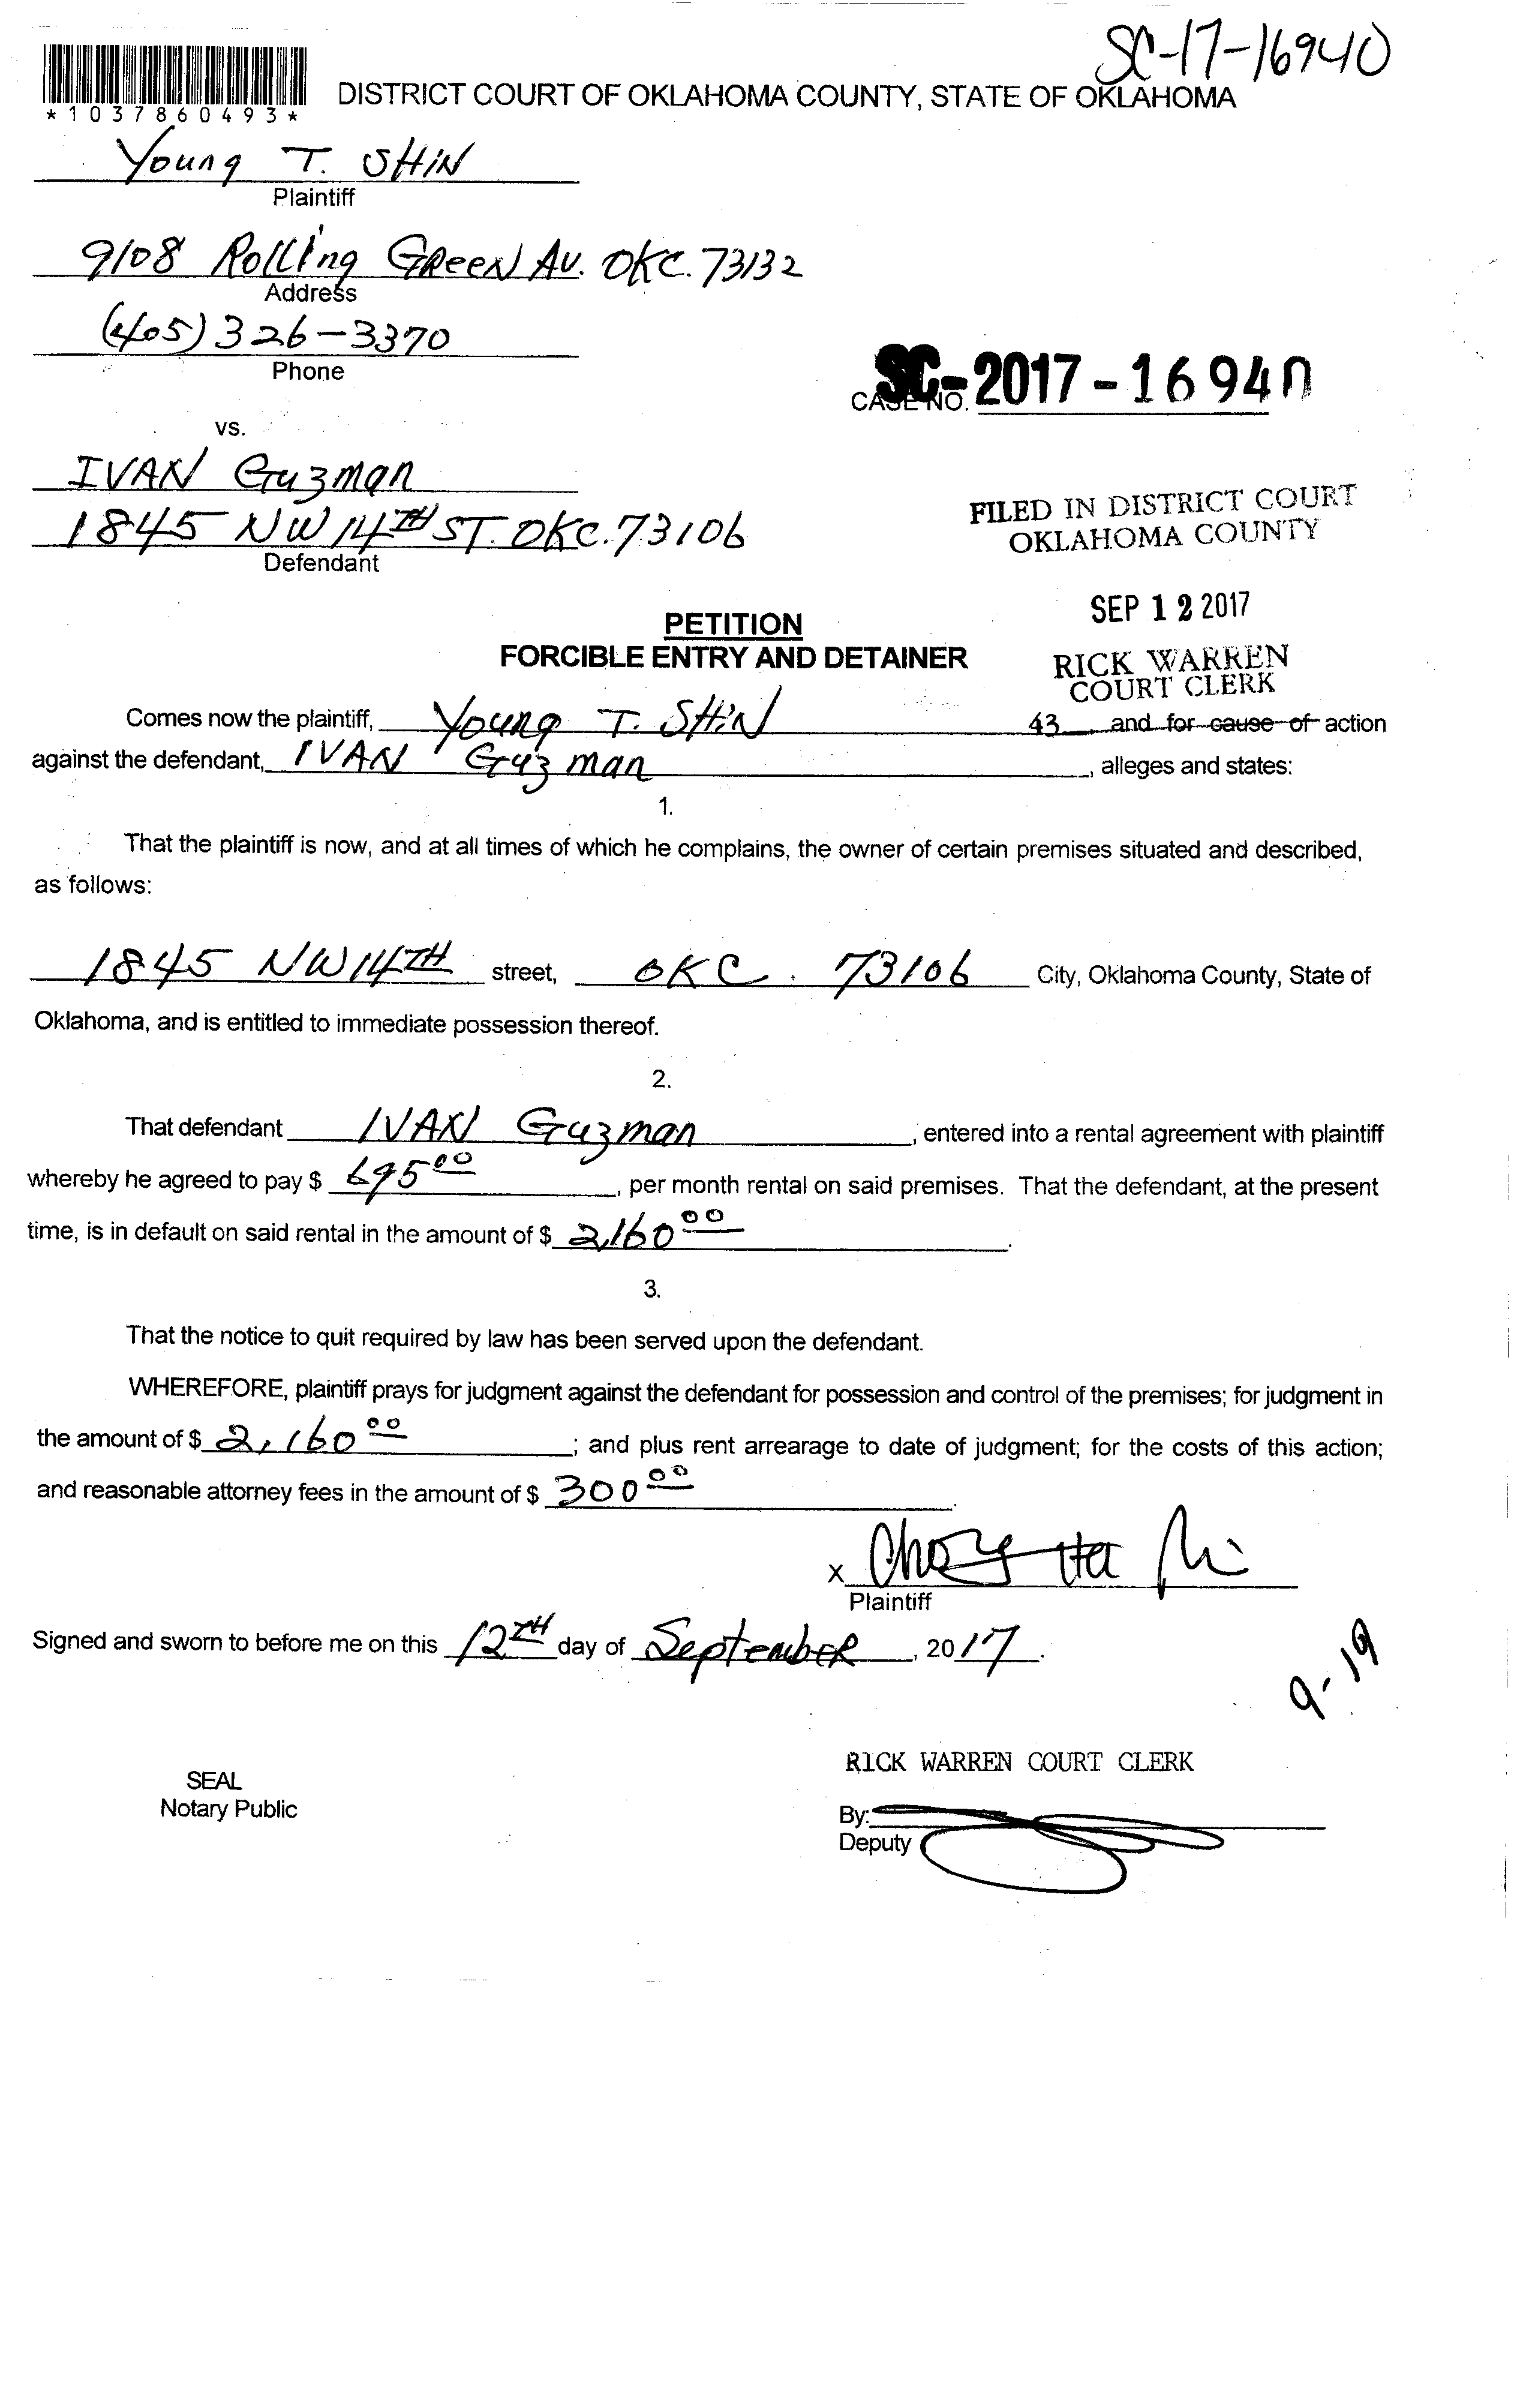 SC-17-16940
*1037860493*
DISTRICT COURT OF OKLAHOMA COUNTY, STATE OF OKLAHOMA
Young T. SHIN
Plaintiff
9108 Rolling GReeN Av. OKC. 73132
Address
(405) 326-3370
Phone
CASE NO. SC-2017-16940
vs.
IVAN Guzman
1845 NW 14TH ST. OKC. 73106
Defendant
FILED IN DISTRICT COURT
OKLAHOMA COUNTY
SEP 12 2017
RICK WARREN
COURT CLERK
43
PETITION
FORCIBLE ENTRY AND DETAINER
Comes now the plaintiff, Young T. SHiN and for cause of action
against the defendant, IVAN Guzman, alleges and states:
1.
That the plaintiff is now, and at all times of which he complains, the owner of certain premises situated and described,
as follows:
1845 NW 14TH street, OKC. 73106 City, Oklahoma County, State of
Oklahoma, and is entitled to immediate possession thereof.
2.
That defendant IVAN Guzman, entered into a rental agreement with plaintiff
whereby he agreed to pay $ 695 00, per month rental on said premises. That the defendant, at the present
time, is in default on said rental in the amount of $ 2,160 00.
3.
That the notice to quit required by law has been served upon the defendant.
WHEREFORE, plaintiff prays for judgment against the defendant for possession and control of the premises; for judgment in
the amount of $ 2,160 00; and plus rent arrearage to date of judgment; for the costs of this action;
and reasonable attorney fees in the amount of $ 300 00.
x
Plaintiff
Signed and sworn to before me on this 12TH day of SeptembeR, 2017.
9-19
RICK WARREN COURT CLERK
SEAL
Notary Public
By:
Deputy